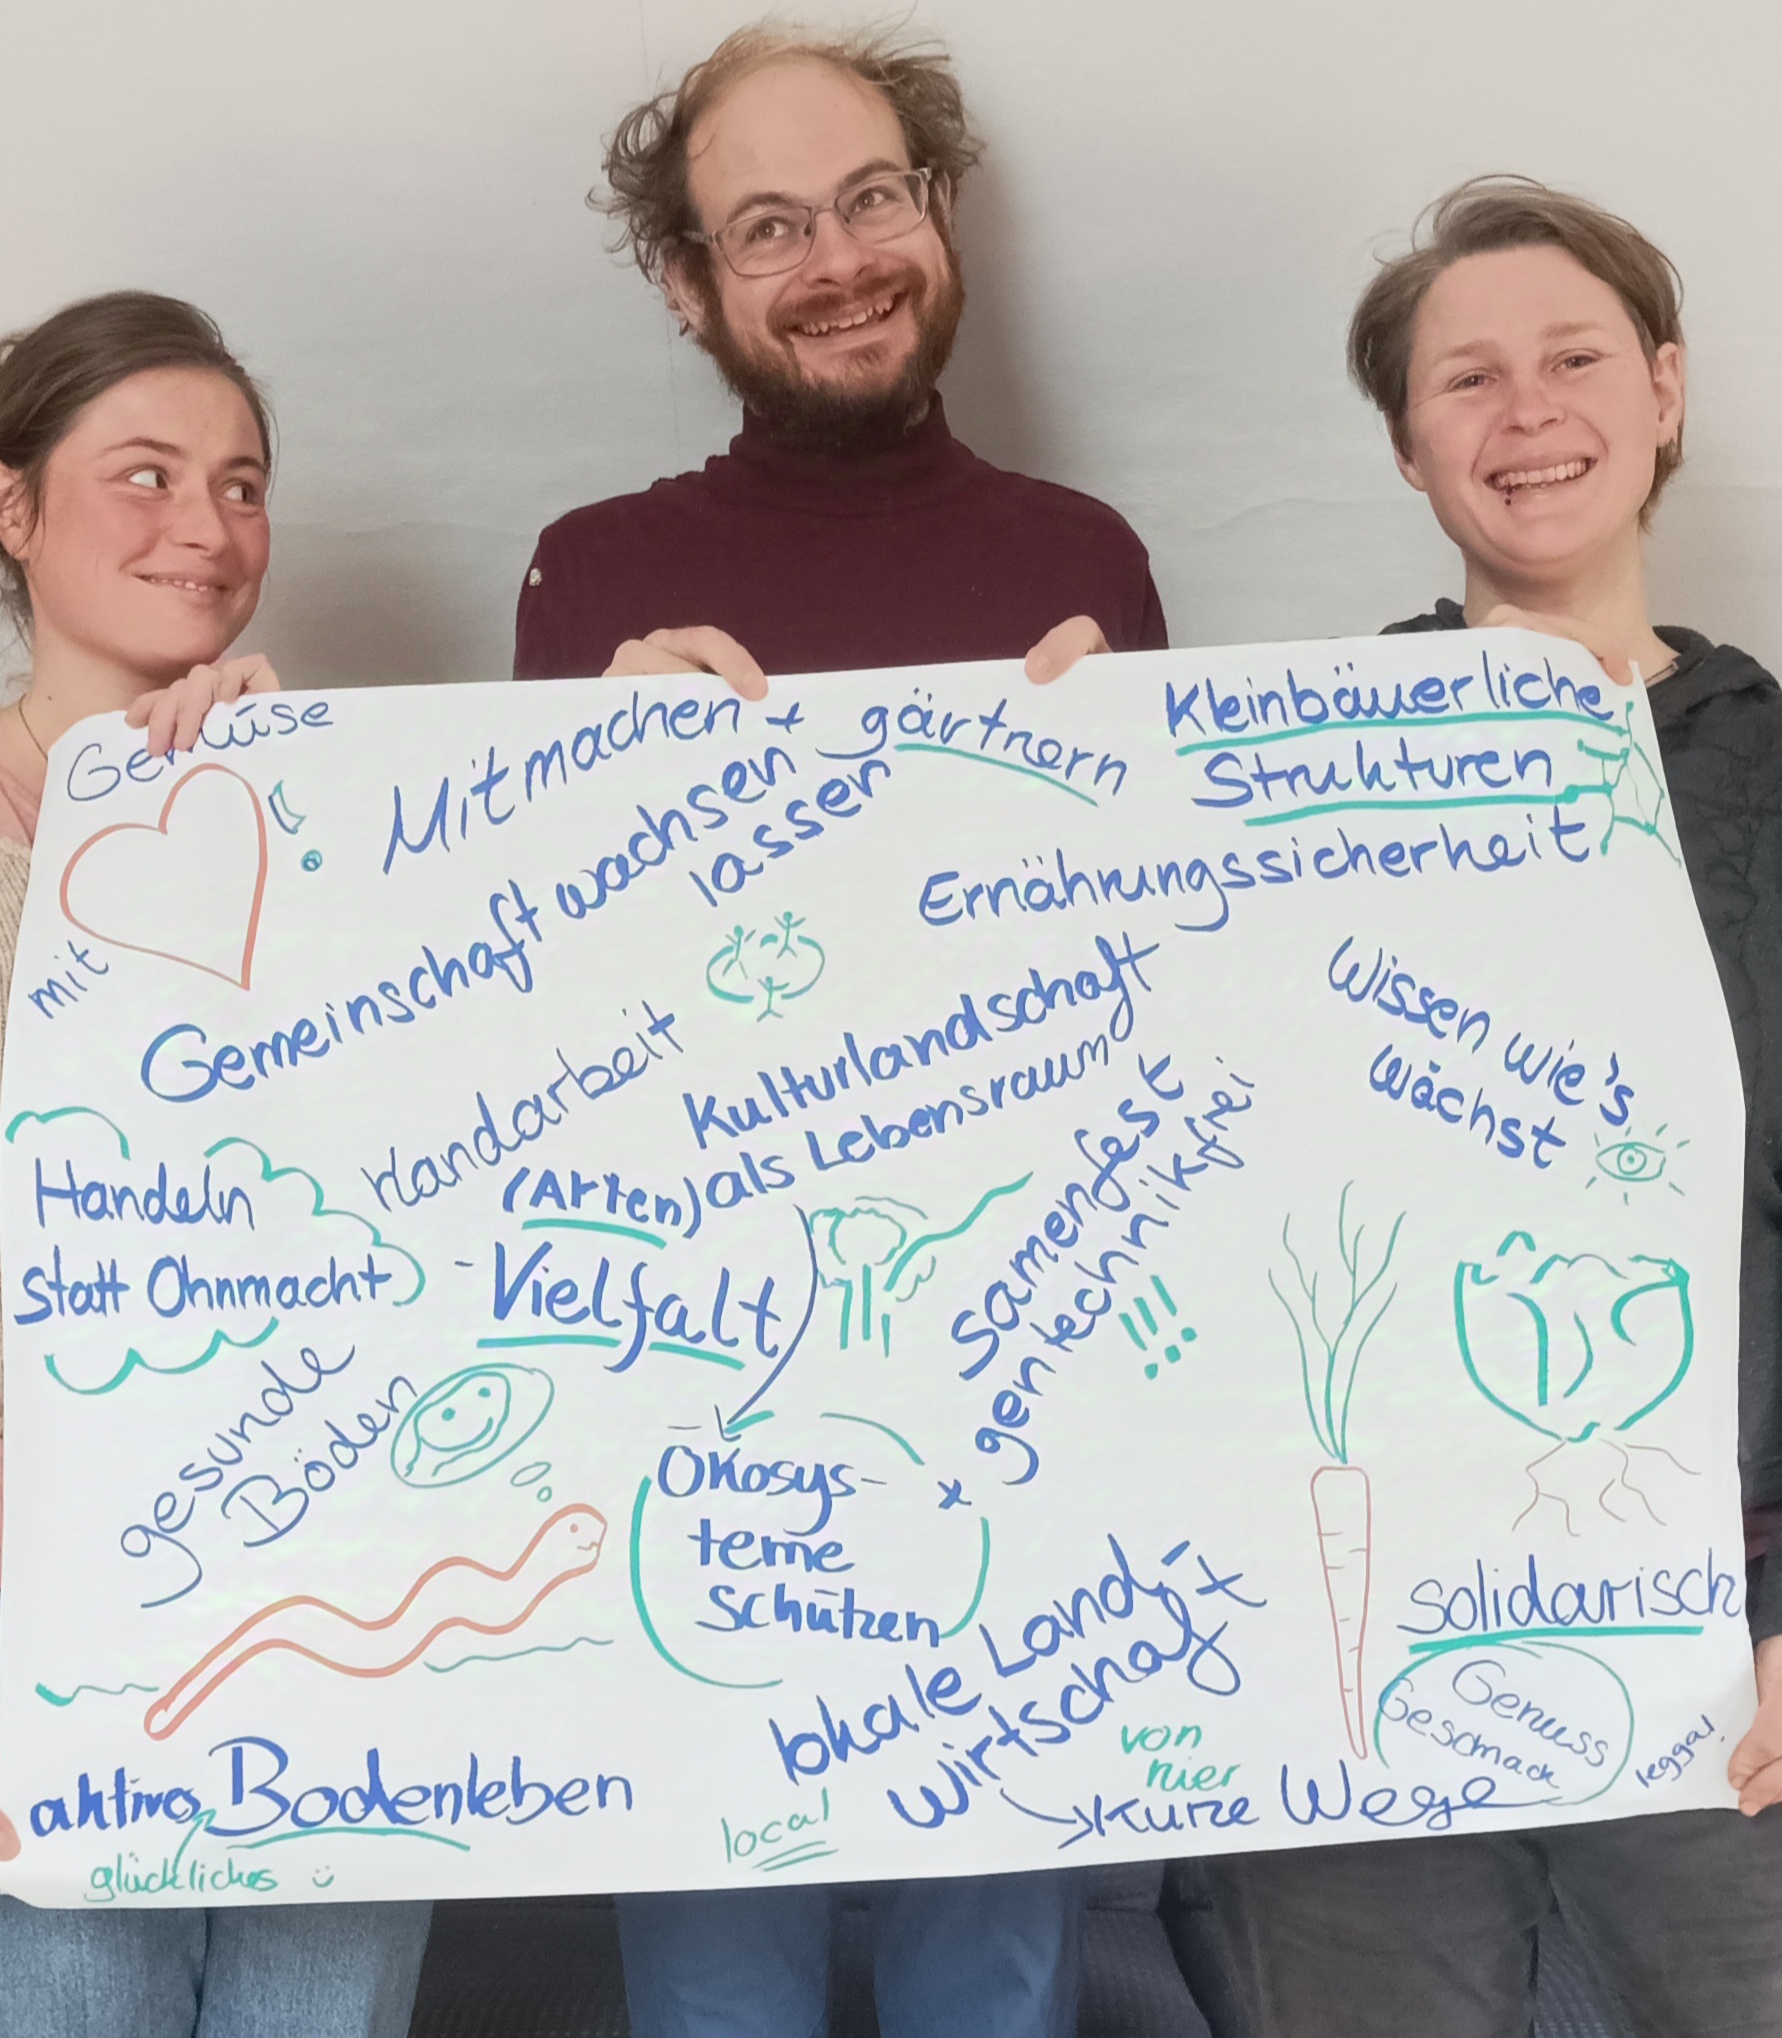 Gemüse
mit
Mitmachen + gärtnern
Gemeinschaft wachsen
lassen
Kleinbäuerliche
Strukturen
Ernährungssicherheit
Handarbeit
Kulturlandschaft
als Lebensraum
Wissen wie's
wächst
Handeln
statt Ohnmacht
(Arten)
-Vielfalt
samenfest
+ gentechnikfrei
!!!
gesunde
Böden
Ökosys-
teme
schützen
solidarisch
lokale Land-
wirtschaft
von
hier
→ kurze Wege
local
Genuss
Geschmack
legga!
aktives Bodenleben
glückliches